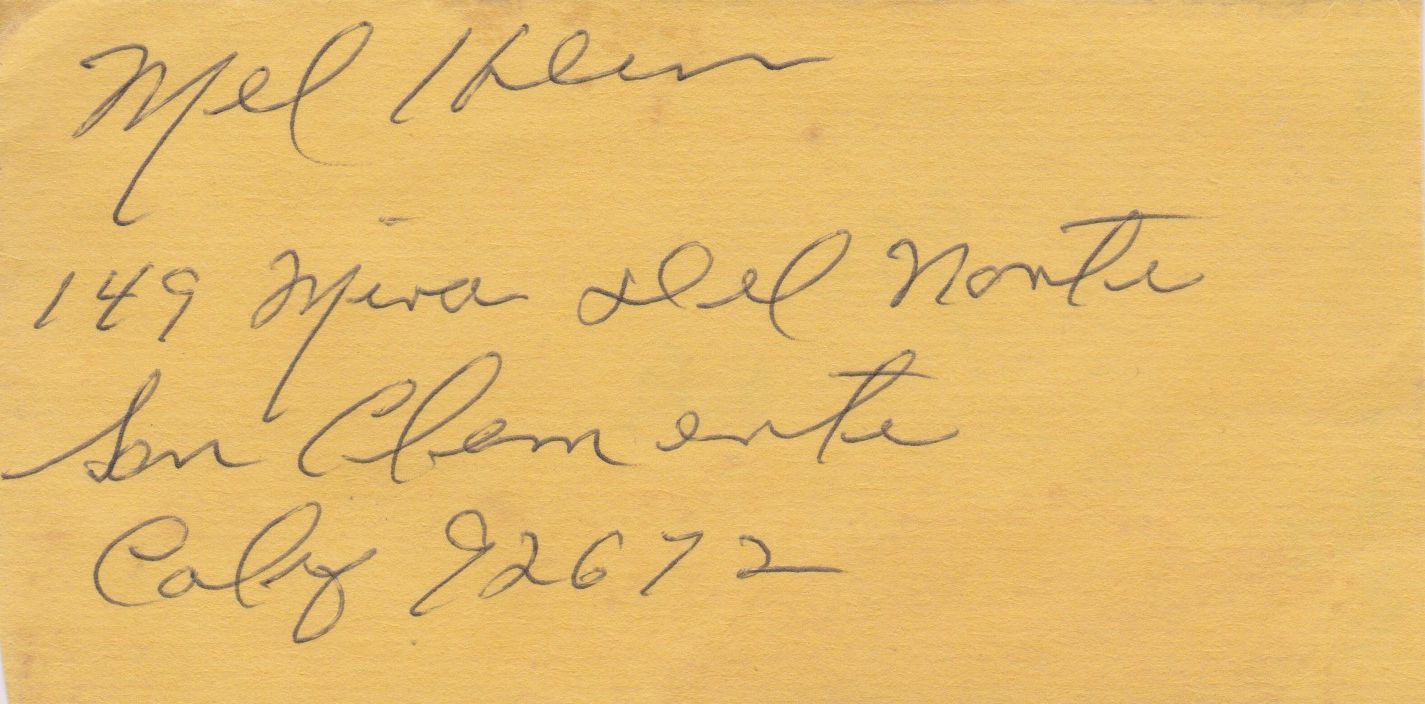 Mel Klein
149 Mira Del Norte
San Clemente
Calif 92672